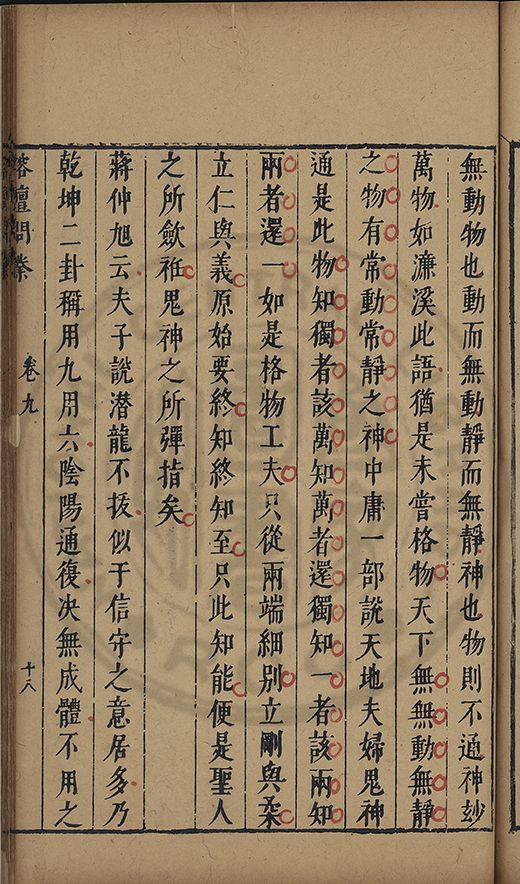 無動物也動而無動靜而無靜神也物則不通神玅
萬物如濂溪此語猶是未嘗格物天下無無動無靜
之物有常動常靜之神中庸一部說天地夫婦鬼神
通是此物知獨者該萬知萬者還獨知一者該兩知
兩者還一如是格物工夫只從兩端細別立剛與柔
立仁與義原始要終知終知至只此知能便是聖人
之所歛袵鬼神之所彈指矣
蔣仲旭云夫子說潛龍不拔似于信守之意居多乃
乾坤二卦稱用九用六陰陽通復决無成體不用之
榕壇問業
卷九
十八